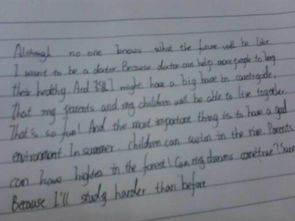 Although no one knows what the future will be like
I want to be a doctor. Because doctor can help more people to keep
their healthy. And I might have a big house in countryside.
That my parents and my children will be able to live together.
That is so fun! And the most important thing is to have a good
environment. In summer children can swim in the river. Parents
can have in the forest! Can my dreams come true? Sure
Because I'll study harder than before